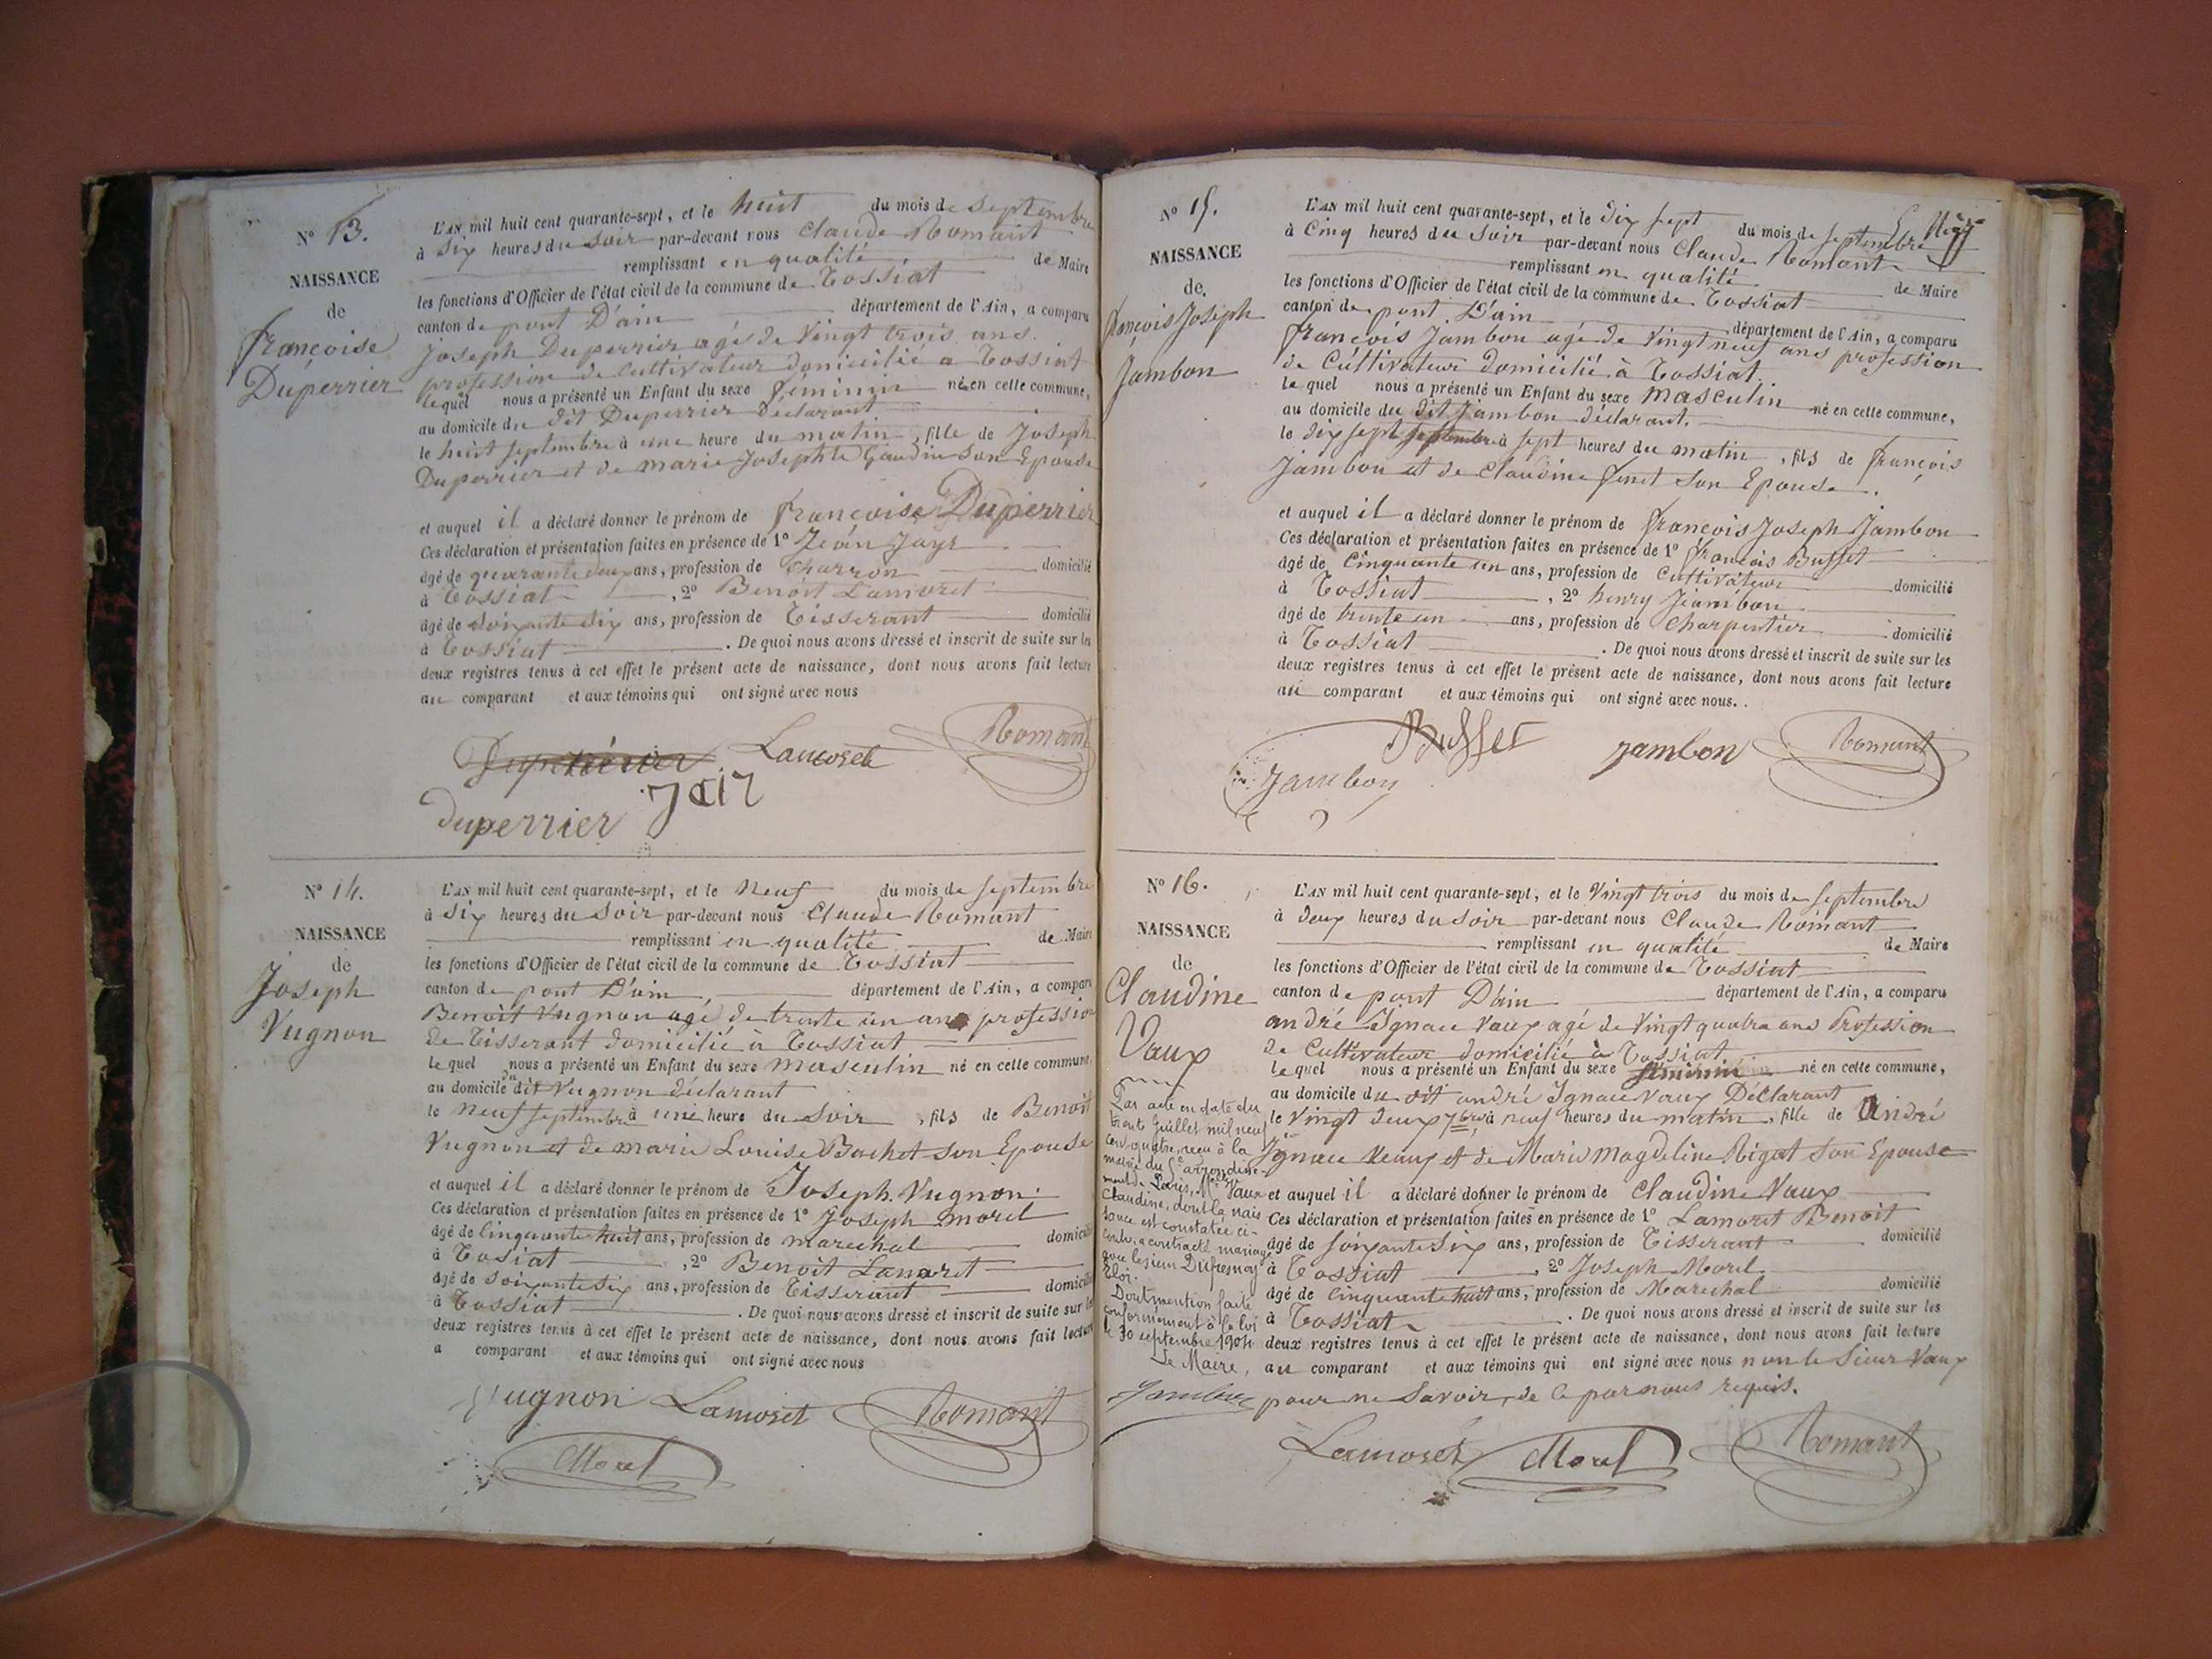 N° 13.
NAISSANCE
de
françoise
Duperrier
L'AN mil huit cent quarante-sept, et le huit du mois de Septembre
à Six heures du Soir par-devant nous Claude Romant
remplissant en qualité de Maire
les fonctions d'Officier de l'état civil de la commune de Tossiat
canton de pont D'ain département de l'Ain, a comparu
Joseph Duperrier agé de Vingt trois ans
profession de Cultivateur domicilié a Tossiat
lequel nous a présenté un Enfant du sexe féminin né en cette commune,
au domicile du dit Duperrier Déclarant
le huit Septembre à une heure du matin, fille de Joseph
Duperrier et de marie Josephte Gaudin Son Epouse
et auquel il a déclaré donner le prénom de françoise Duperrier
Ces déclaration et présentation faites en présence de 1° Jean Jayr
âgé de quarante deux ans, profession de Charron domicilié
à Tossiat, 2° Benoit Lamoret
âgé de Soixante Six ans, profession de Tisserant domicilié
à Tossiat. De quoi nous avons dressé et inscrit de suite sur les
deux registres tenus à cet effet le présent acte de naissance, dont nous avons fait lecture
au comparant et aux témoins qui ont signé avec nous
Lamoret Romant
duperrier Jair
N° 14.
NAISSANCE
de
Joseph
Vugnon
L'AN mil huit cent quarante-sept, et le Neuf du mois de Septembre
à Six heures du Soir par-devant nous Claude Romant
remplissant en qualité de Maire
les fonctions d'Officier de l'état civil de la commune de Tossiat
canton de pont D'ain, département de l'Ain, a comparu
Benoit Vugnon agé de trente un ans profession
de Tisserant domicilié à Tossiat
lequel nous a présenté un Enfant du sexe masculin né en cette commune,
au domicile du dit Vugnon déclarant
le neuf Septembre à une heure du Soir, fils de Benoit
Vugnon et de marie Louise Bochet Son Epouse
et auquel il a déclaré donner le prénom de Joseph Vugnon.
Ces déclaration et présentation faites en présence de 1° Joseph morel
âgé de Cinquante huit ans, profession de marechal domicilié
à Tosiat, 2° Benoit Lamoret
âgé de Soixante Six ans, profession de Tisserant domicilié
à Tossiat. De quoi nous avons dressé et inscrit de suite sur les
deux registres tenus à cet effet le présent acte de naissance, dont nous avons fait lecture
a comparant et aux témoins qui ont signé avec nous
Vugnon Lamoret Romant
Morel
N° 15.
NAISSANCE
de
françois Joseph
Jambon
L'AN mil huit cent quarante-sept, et le dix Sept du mois de Septembre
à Cinq heures du Soir par-devant nous Claude Romant
remplissant en qualité de Maire
les fonctions d'Officier de l'état civil de la commune de Tossiat
canton de pont D'ain département de l'Ain, a comparu
françois Jambon agé de Vingt neuf ans profession
de Cultivateur domicilié à Tossiat
lequel nous a présenté un Enfant du sexe masculin né en cette commune,
au domicile du dit Jambon déclarant.
le dix Sept Septembre à Sept heures du matin, fils de françois
Jambon et de Claudine Son Epouse.
et auquel il a déclaré donner le prénom de françois Joseph Jambon
Ces déclaration et présentation faites en présence de 1° françois Buffet
âgé de Cinquante un ans, profession de Cultivateur domicilié
à Tossiat, 2° henry Jambon
âgé de trente un ans, profession de Charpentier domicilié
à Tossiat. De quoi nous avons dressé et inscrit de suite sur les
deux registres tenus à cet effet le présent acte de naissance, dont nous avons fait lecture
au comparant et aux témoins qui ont signé avec nous.
Buffet jambon Romant
Jambon
N° 16.
NAISSANCE
de
Claudine
Vaux
Par acte en date du
trente Juillet mil neuf
cent quatre, reçu à la
mairie du 5e arrondisse-
ment de Paris, Vaux
Claudine, dont la nais
sance est constatée ci-
contre, a contracté mariage
avec le sieur Dufresnoy
Eloi.
Dont mention faite
conformément à la loi
le 30 septembre 1904
Le Maire,
L'AN mil huit cent quarante-sept, et le Vingt trois du mois de Septembre
à Deux heures du Soir par-devant nous Claude Romant
remplissant en qualité de Maire
les fonctions d'Officier de l'état civil de la commune de Tossiat
canton de pont D'ain département de l'Ain, a comparu
andré Ignace Vaux agé de Vingt quatre ans Profession
de Cultivateur domicilié à Tossiat
lequel nous a présenté un Enfant du sexe féminin né en cette commune,
au domicile du dit andré Ignace Vaux Déclarant
le Vingt Deux 7bre à neuf heures du matin, fille de André
Ignace Veaux et de Marie Magdeline Rigat Son Epouse
et auquel il a déclaré donner le prénom de Claudine Vaux
Ces déclaration et présentation faites en présence de 1° Lamoret Benoit
âgé de Soixante Six ans, profession de Tisserant domicilié
à Tossiat, 2° Joseph Morel
âgé de Cinquante huit ans, profession de Marechal domicilié
à Tossiat. De quoi nous avons dressé et inscrit de suite sur les
deux registres tenus à cet effet le présent acte de naissance, dont nous avons fait lecture
au comparant et aux témoins qui ont signé avec nous non le Sieur Vaux
pour ne Savoir, de ce par nous requis.
Lamoret Morel Romant